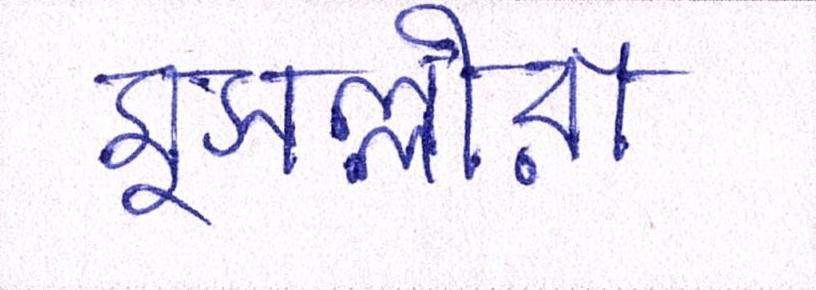 মুসল্লীরা